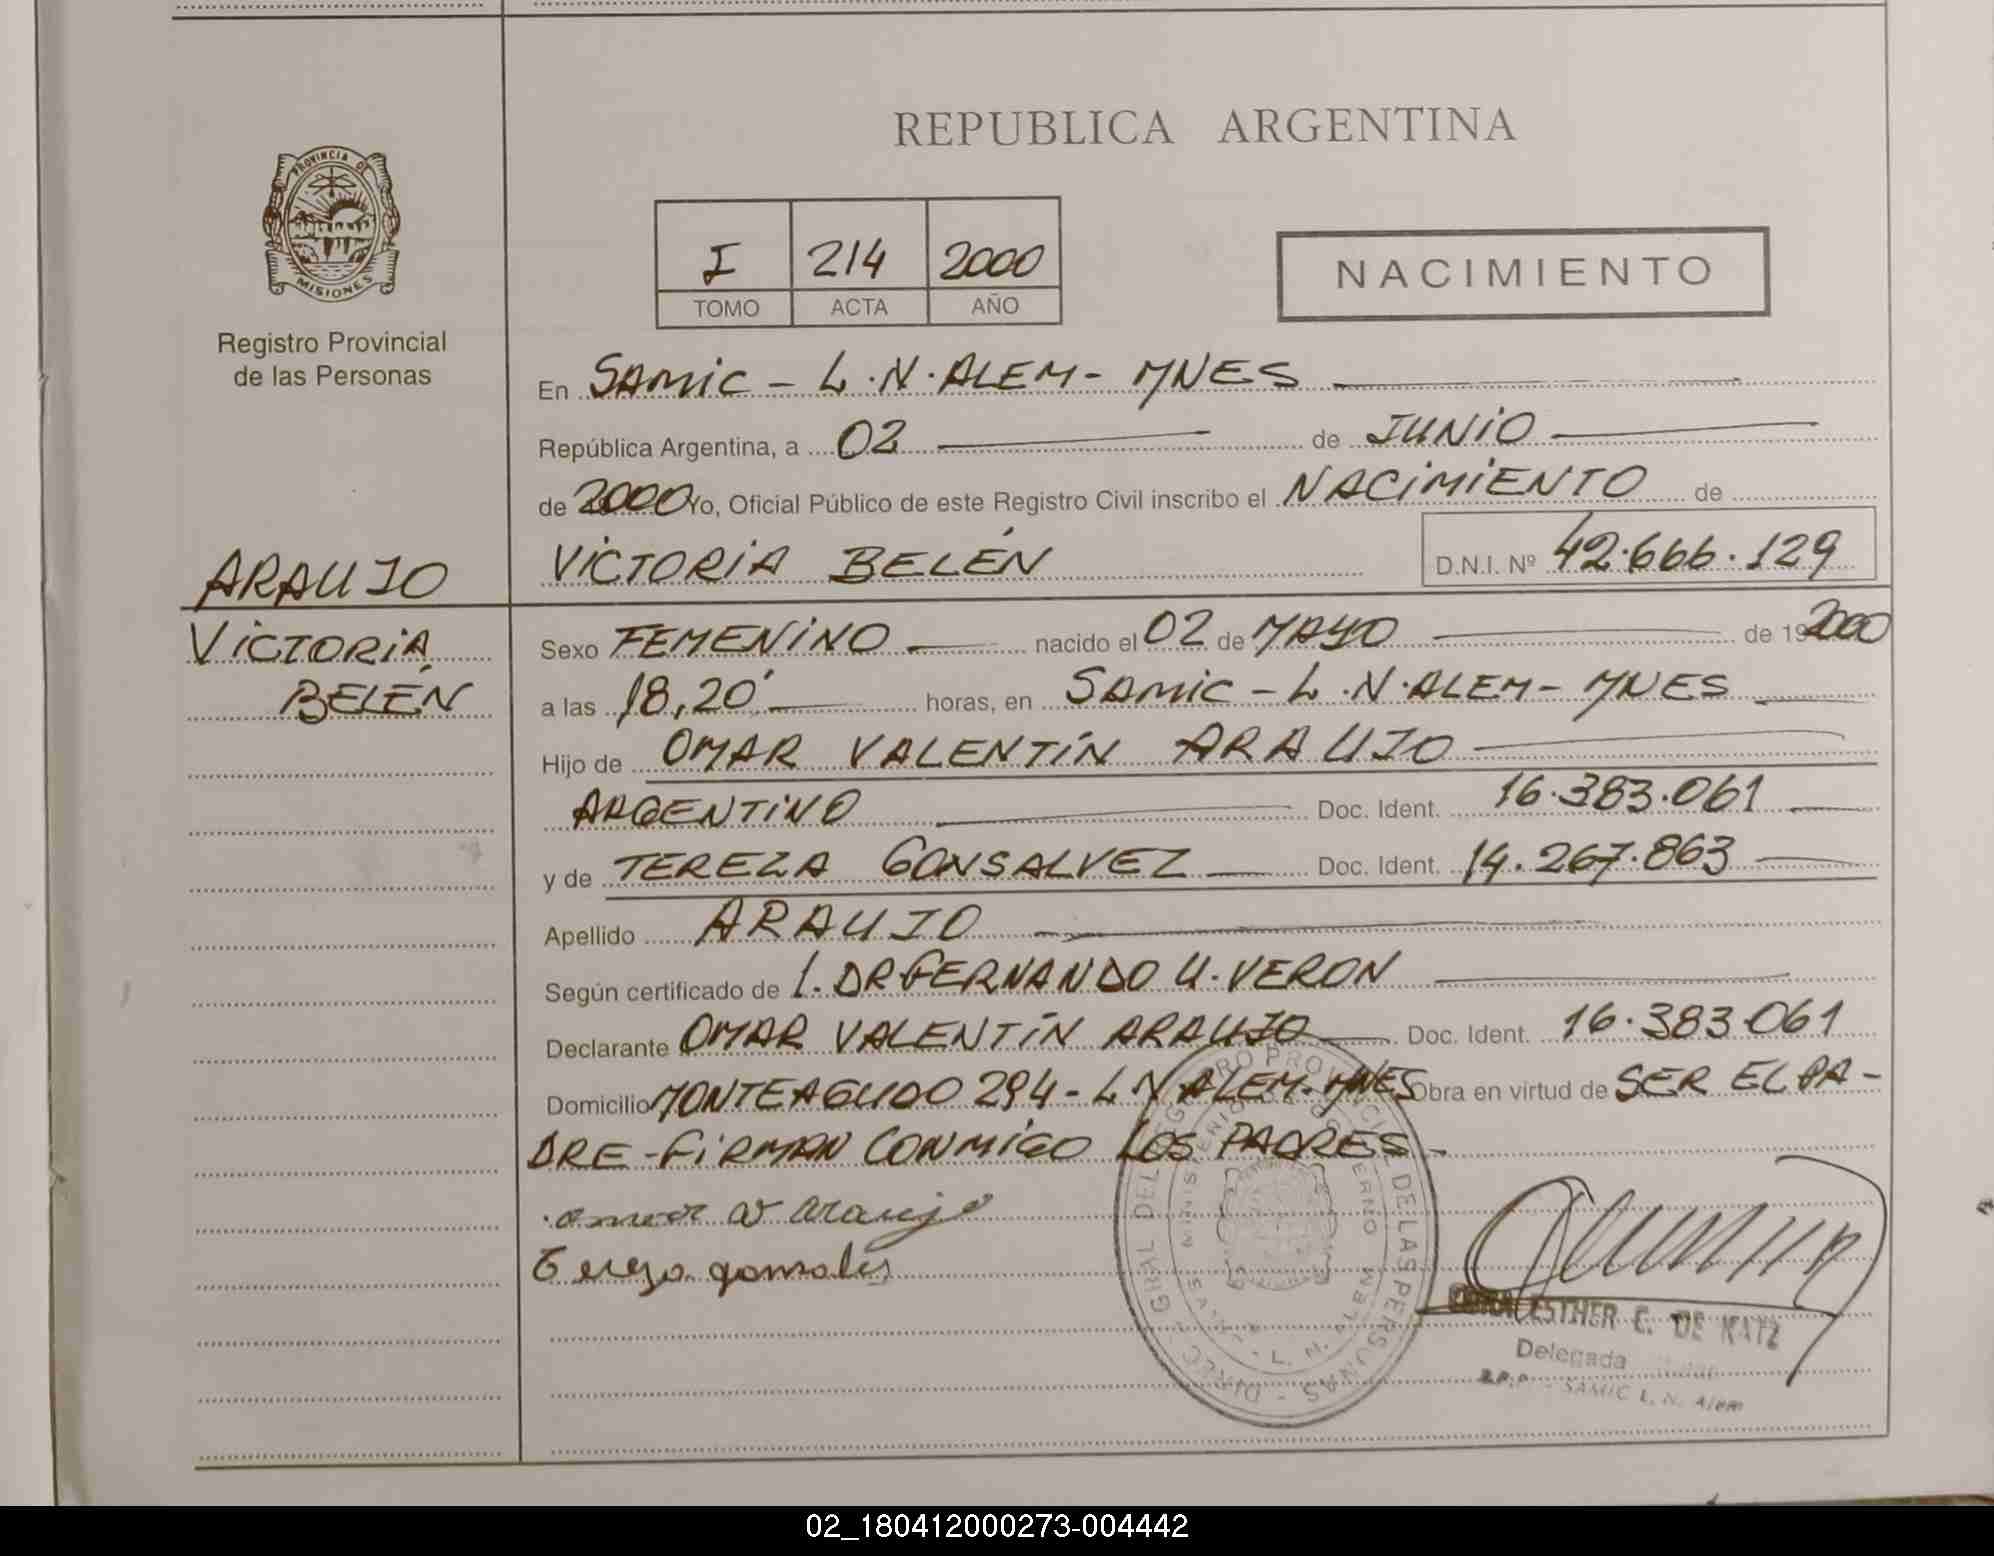 PROVINCIA DE
MISIONES
Registro Provincial
de las Personas
ARAUJO
VICTORIA
BELÉN
REPUBLICA ARGENTINA
I 214 2000
TOMO ACTA AÑO
NACIMIENTO
En SAMIC - L.N. ALEM - MNES
República Argentina, a 02 de JUNIO
de 2000 Yo, Oficial Público de este Registro Civil inscribo el NACIMIENTO de
VICTORIA BELÉN D.N.I. Nº 42.666.129
Sexo FEMENINO nacido el 02 de MAYO de 19 2000
a las 18,20' horas, en SAMIC - L.N. ALEM - MNES
Hijo de OMAR VALENTÍN ARAUJO
ARGENTINO Doc. Ident. 16.383.061
y de TEREZA GONSALVEZ Doc. Ident. 14.267.863
Apellido ARAUJO
Según certificado de 1. DR FERNANDO U. VERON
Declarante OMAR VALENTÍN ARAUJO Doc. Ident. 16.383.061
Domicilio MONTEAGUDO 294 - L N ALEM. MNES Obra en virtud de SER EL PA-
DRE - FIRMAN CONMIGO LOS PADRES -
omar v araujo
Tereza gonsales
ESTHER C. DE KATZ
Delegada
SAMIC L. N. Alem
02_180412000273-004442